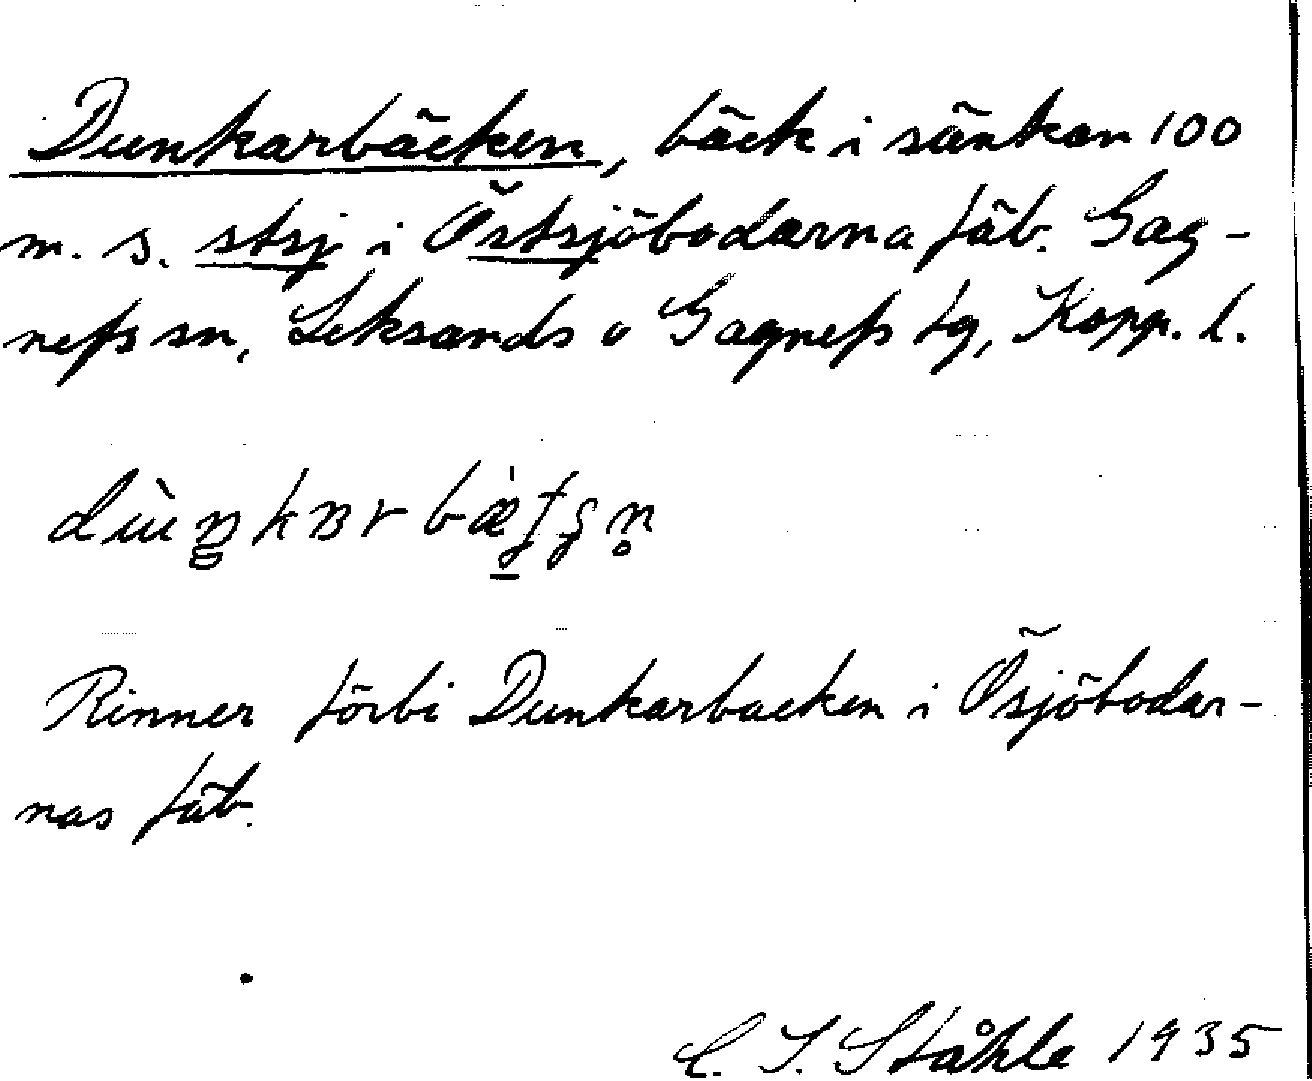 Dunkarbäcken, bäck i sänkan 100
m. s. stsj i Östsjöbodarna fäb. Gag-
nefs sn, Leksands o Gagnefs tg, Kopp. l.
Rinner förbi Dunkarbacken i Ösjöbodar-
nas fäb.
C. I. Ståhle 1935